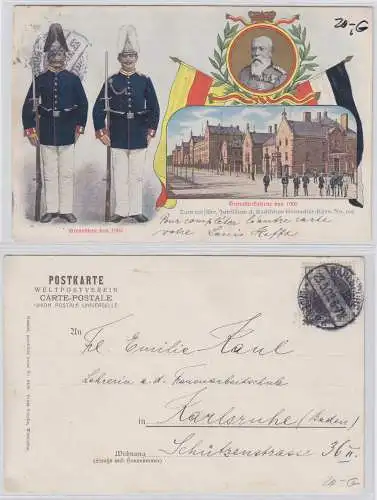 20,-G
Grenadiere von 1903
Grenadierkaserne von 1903
Zum 100 jähr. Jubiläum d. Badischen Leibgrenadier-Regts. No. 109
Pour compléter l'autre carte
votre Louis
POSTKARTE
WELTPOSTVEREIN
CARTE-POSTALE
UNION POSTALE UNIVERSELLE
An
Frl. Emilie Kaul
Lehrerin a. d. Frauenarbeitschule
in Karlsruhe (Baden)
Wohnung Schützenstrasse 36 II.
(Straße und Hausnummer)
20-G